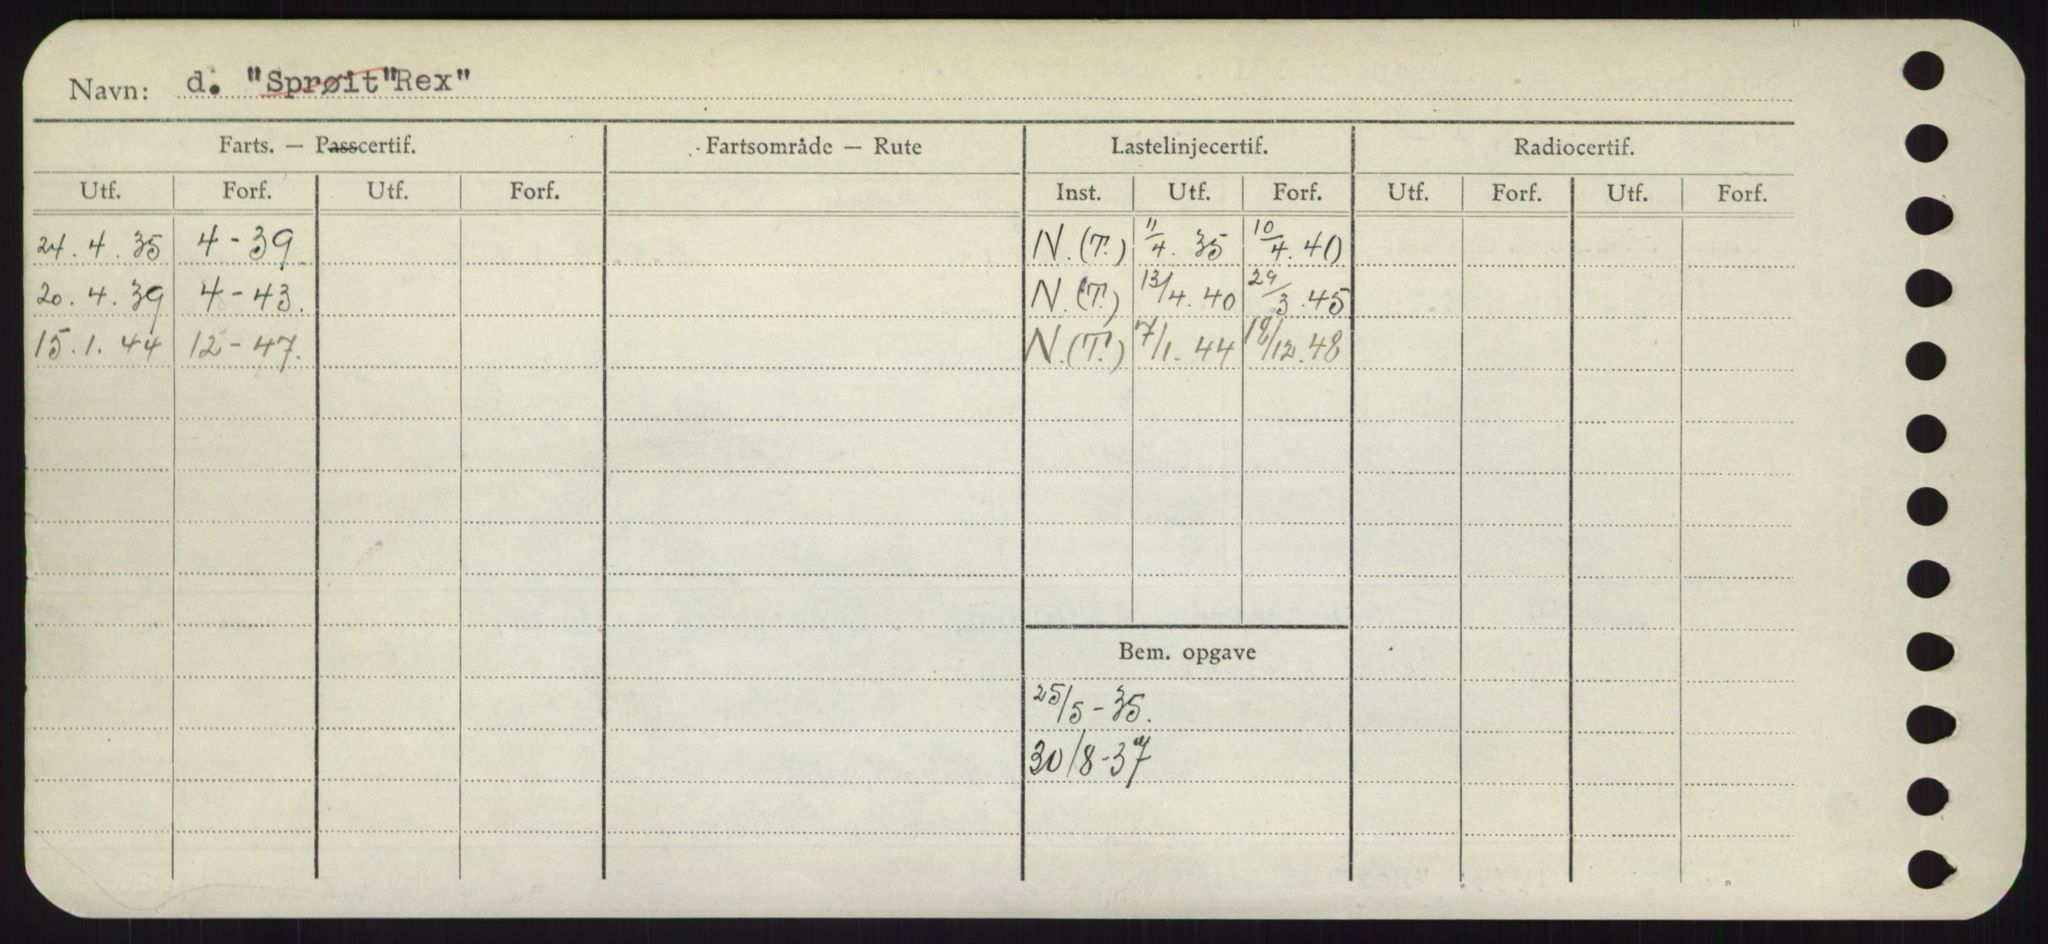 Navn: d. "Sprøit" Rex"
Farts. — Passcertif. Fartsområde — Rute Lastelinjecertif. Radiocertif.
Utf. Forf. Utf. Forf. Inst. Utf. Forf. Utf. Forf. Utf. Forf.
24. 4. 35 4-39 N. (T.) 11/4. 35 10/4. 40
20. 4. 39 4-43. N. (T.) 13/4. 40 29/3. 45
15. 1. 44 12-47. N. (T.) 7/1. 44 18/12. 48
Bem. opgave
25/5-35.
30/8-37